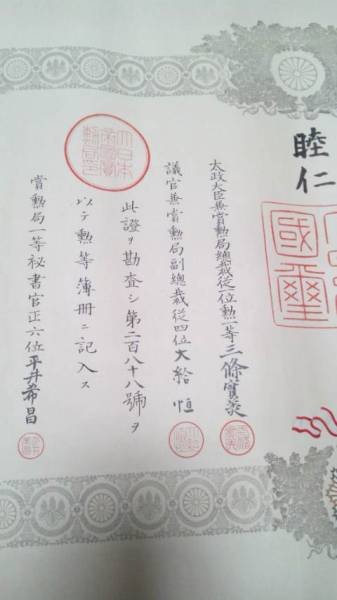 睦仁
國璽
太政大臣兼賞勲局總裁從一位勲一等三條實美
議官兼賞勲局副總裁從四位大給恒
此證ヲ勘査シ第二百八十八號ヲ
以テ勲等簿冊ニ記入ス
大日本
賞勲局一等秘書官正六位平井希昌